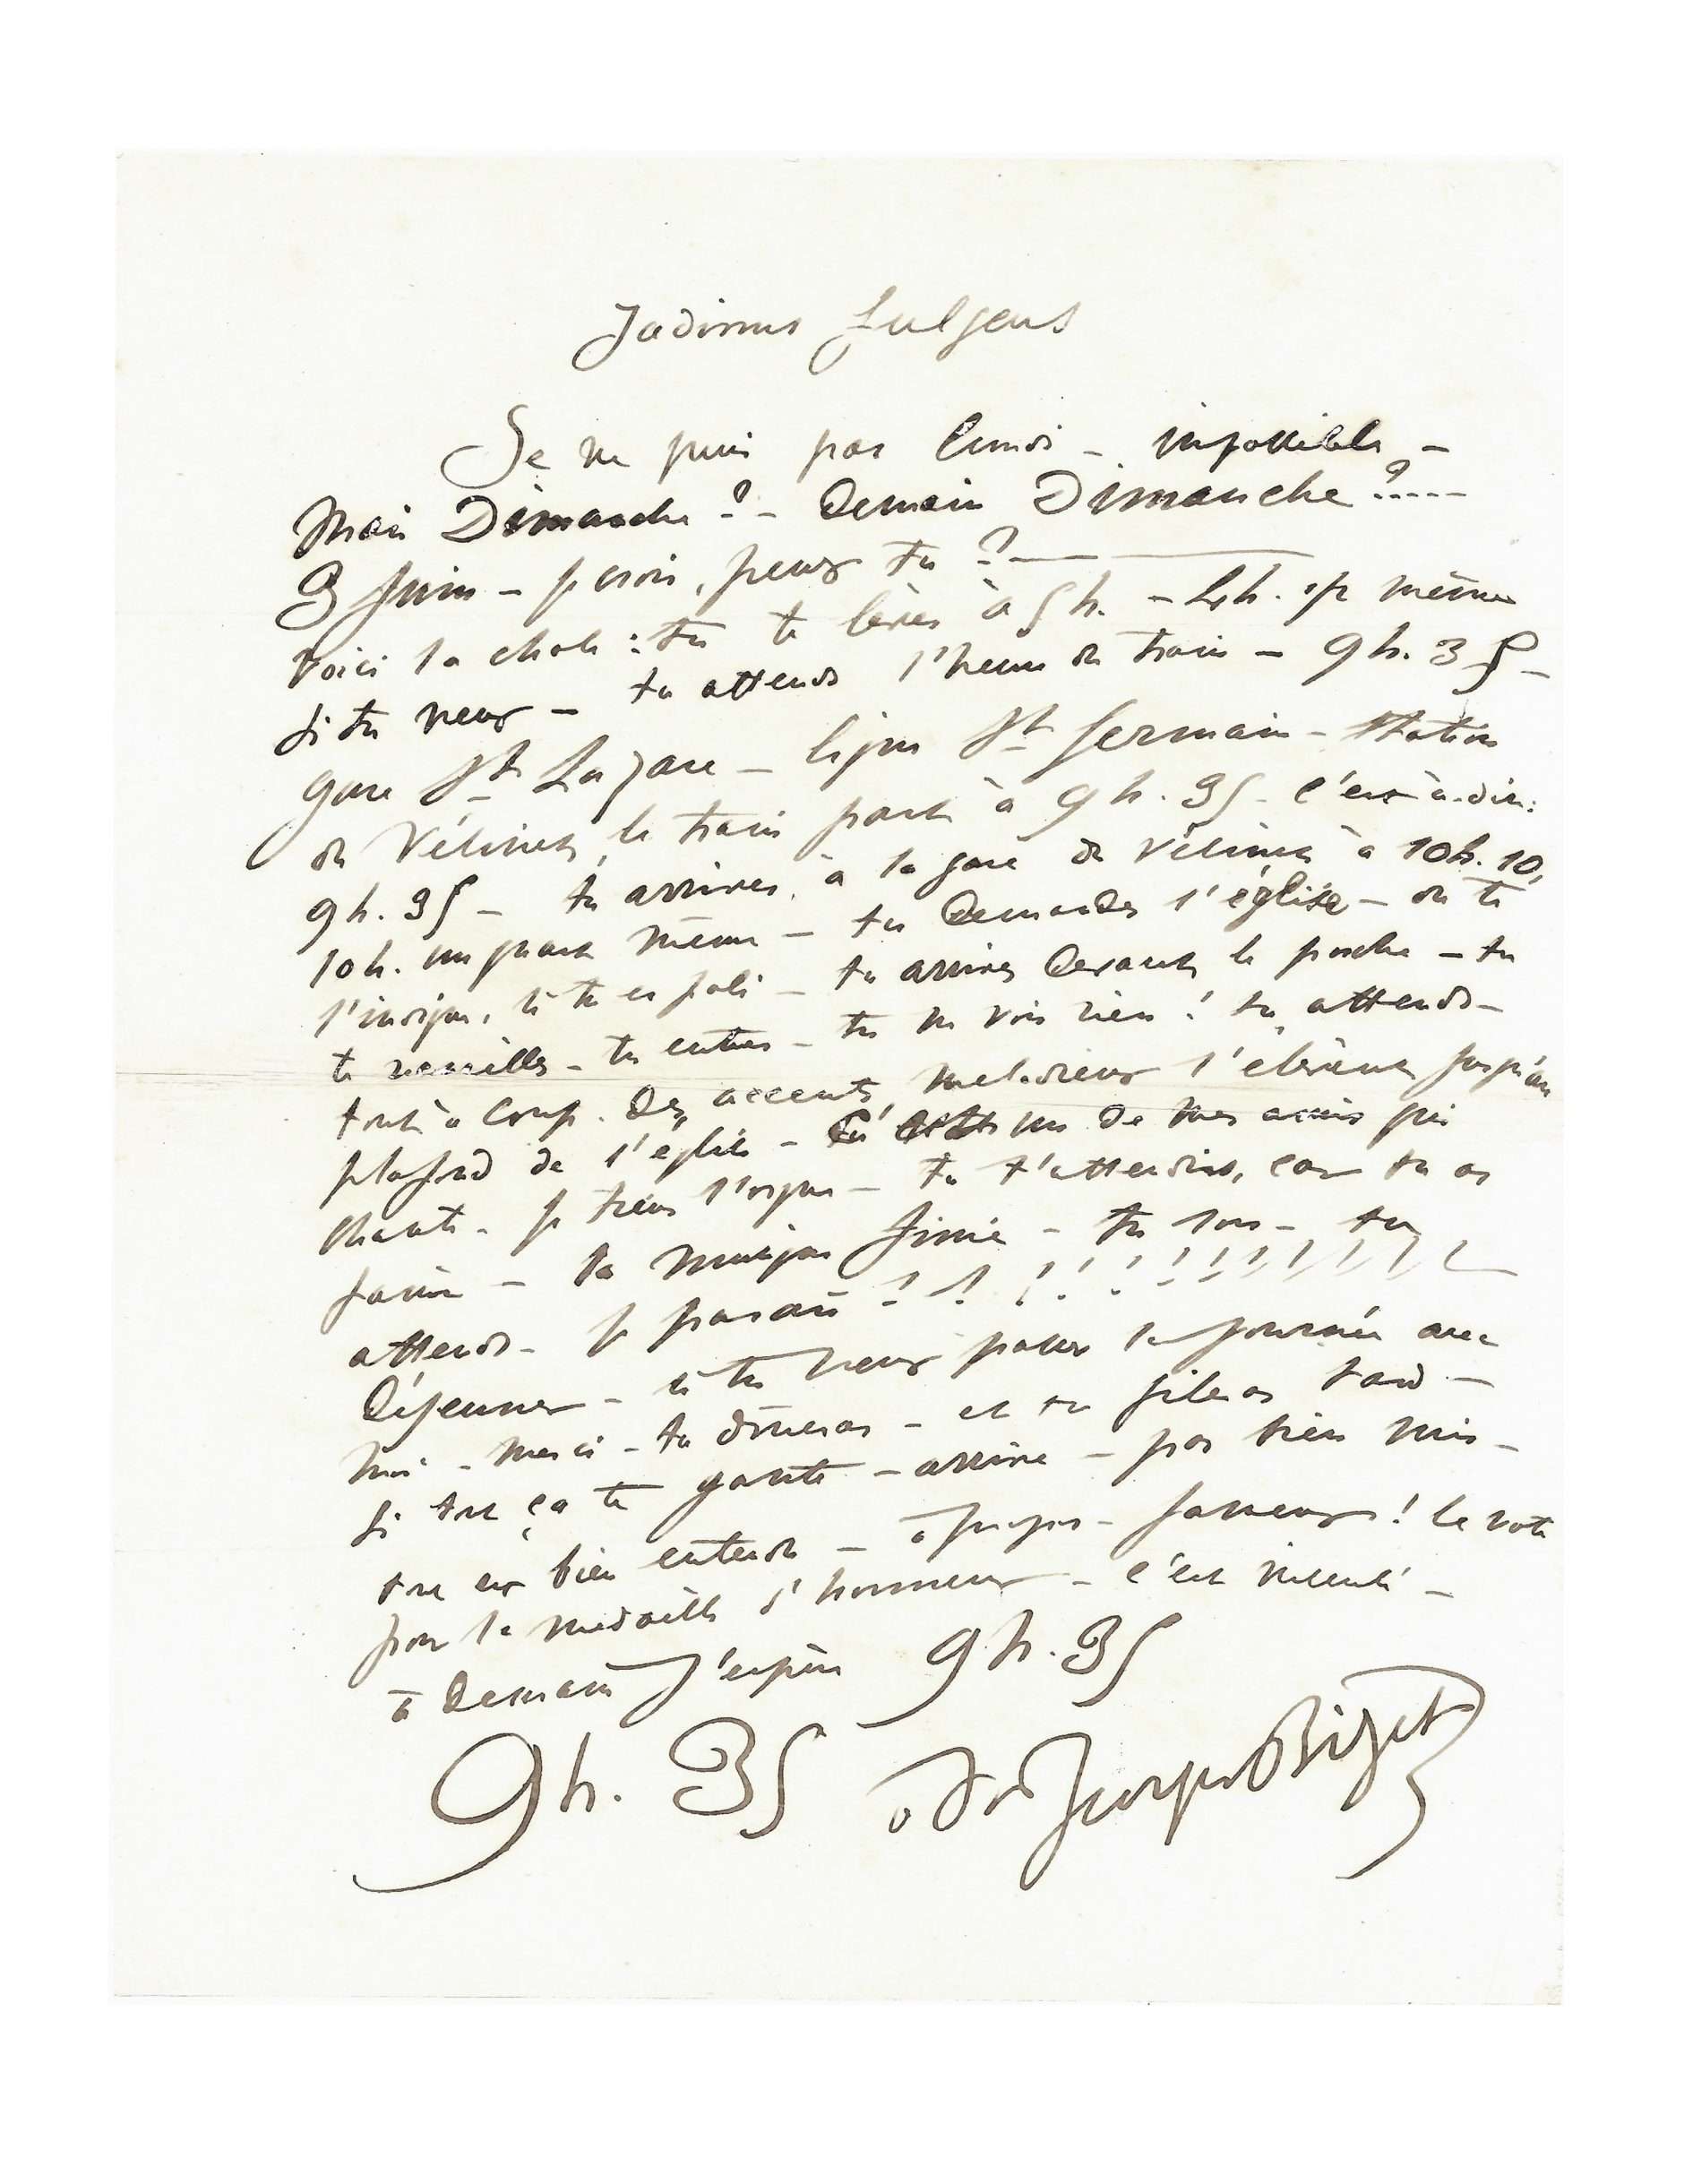 Jadinus Fulgens
Je ne puis pas lundi – impossible –
Mais Dimanche ? – Demain Dimanche ?.....
3 Juin – je crois, peux tu ? —
Voici la chose : tu te lèves à 5 h. – 4 h. 1/2 même
si tu veux – tu attends l'heure du train – 9 h. 35 –
gare St Lazare – ligne St Germain – Station
du Vésinet, le train part à 9 h. 35 – c'est-à-dire :
9 h. 35 – tu arrives à la gare du Vésinet à 10 h. 10,
10 h. un quart même – tu demandes l'église – on te
l'indique, si tu es poli – tu arrives devant le porche – tu
te – tu entres – tu ne vois rien ! tu attends –
tout à coup des accents mélodieux s'élèvent jusqu'au
plafond de l'église – C'est un de mes amis qui
chante – je tiens l'orgue – tu t'attendris, car tu as
faim – la musique finie – tu sors – tu
attends – je parais ! ! ! ! ! ! ! ! ! ! ! ! !
Déjeuner – si tu veux passer la journée avec
moi – merci – tu dîneras – et tu fileras tard –
Si tout ça te gante – arrive – pas bien mis –
tout est bien entendu – à propos – farceur ! le vote
pour la médaille d'honneur – c'est insensé –
à Demain j'espère 9 h. 35
9 h. 35 à toi Georges Bizet